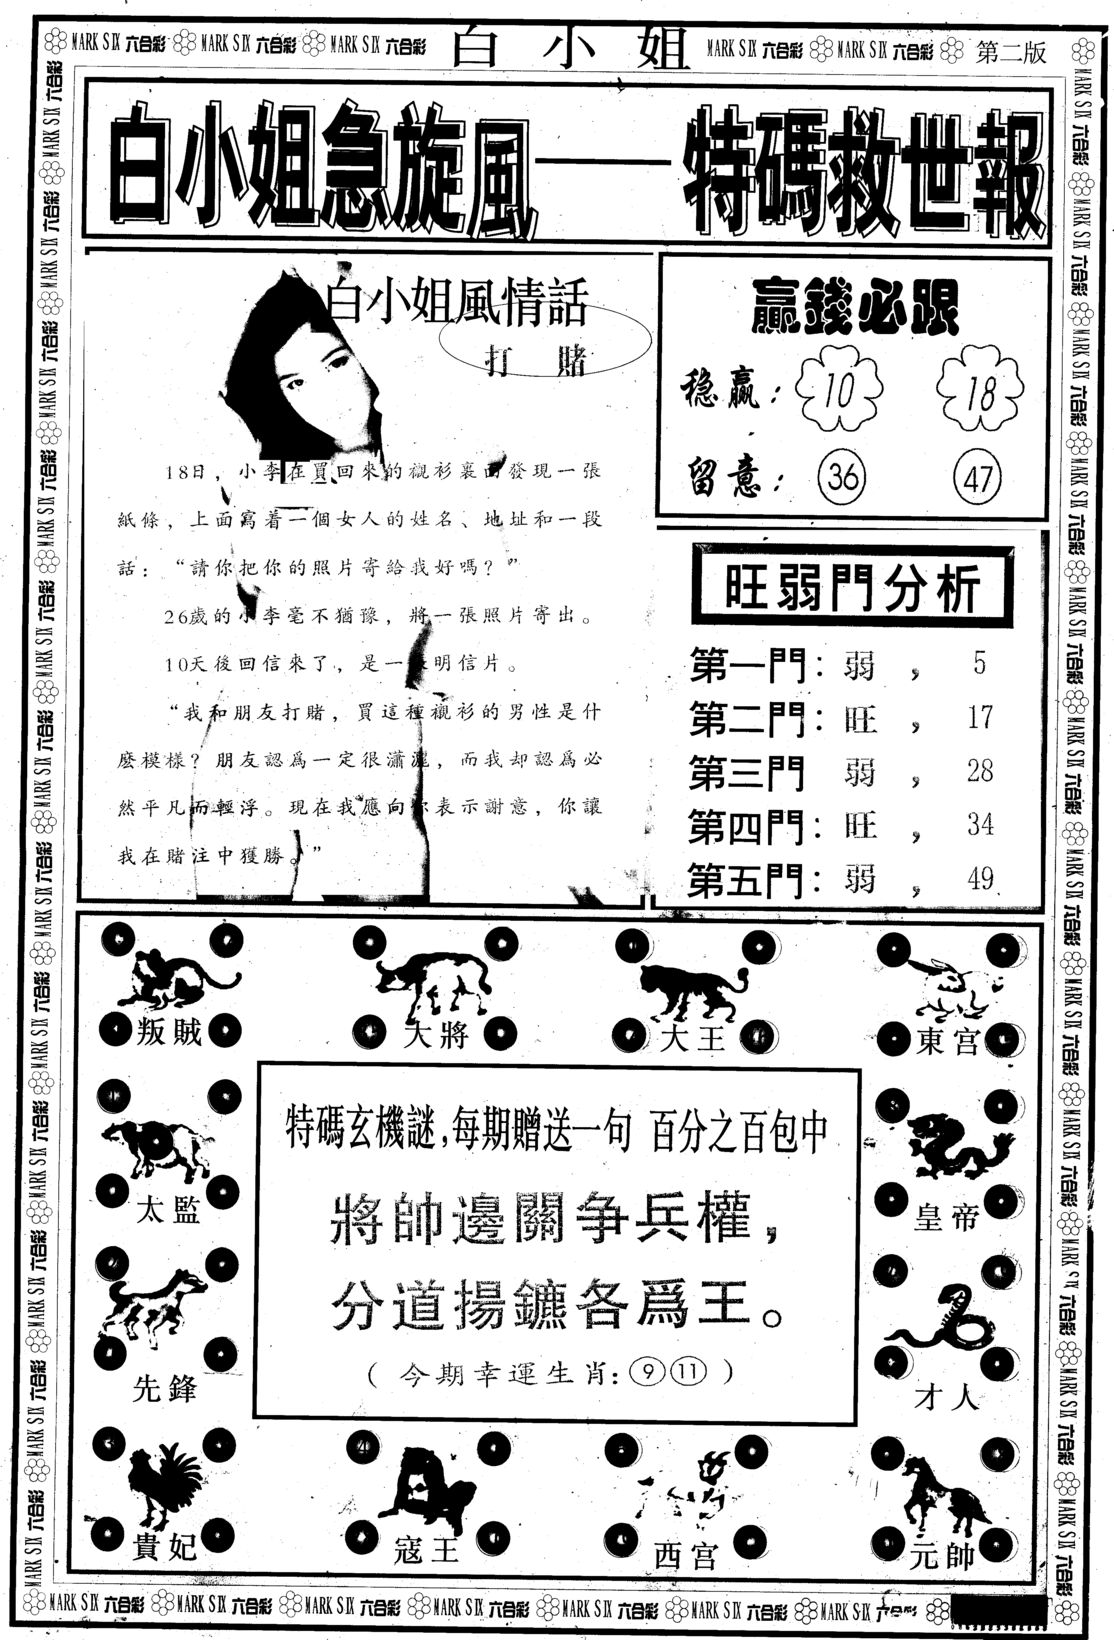 MARK SIX 六合彩 MARK SIX 六合彩 MARK SIX 六合彩 白小姐 MARK SIX 六合彩 MARK SIX 六合彩 第二版
白小姐急旋風——特碼救世報
白小姐風情話
打賭
18日，小李在買回來的襯衫裏面發現一張
紙條，上面寫着一個女人的姓名、地址和一段
話：“請你把你的照片寄給我好嗎？”
26歲的小李毫不猶豫，將一張照片寄出。
10天後回信來了，是一張明信片。
“我和朋友打賭，買這種襯衫的男性是什
麽模樣？朋友認爲一定很瀟灑，而我却認爲必
然平凡而輕浮。現在我應向你表示謝意，你讓
我在賭注中獲勝。”
贏錢必跟
稳赢：10 18
留意：36 47
旺弱門分析
第一門：弱，5
第二門：旺，17
第三門 弱，28
第四門：旺，34
第五門：弱，49
叛賊 大將 大王 東宫
太監
皇帝
先鋒
才人
特碼玄機謎,每期贈送一句 百分之百包中
將帥邊關争兵權，
分道揚鑣各爲王。
（今期幸運生肖：⑨⑪）
貴妃 寇王 西宫 元帥
MARK SIX 六合彩 MARK SIX 六合彩 MARK SIX 六合彩 MARK SIX 六合彩 MARK SIX 六合彩 MARK SIX 六合彩 MARK SIX 六合彩